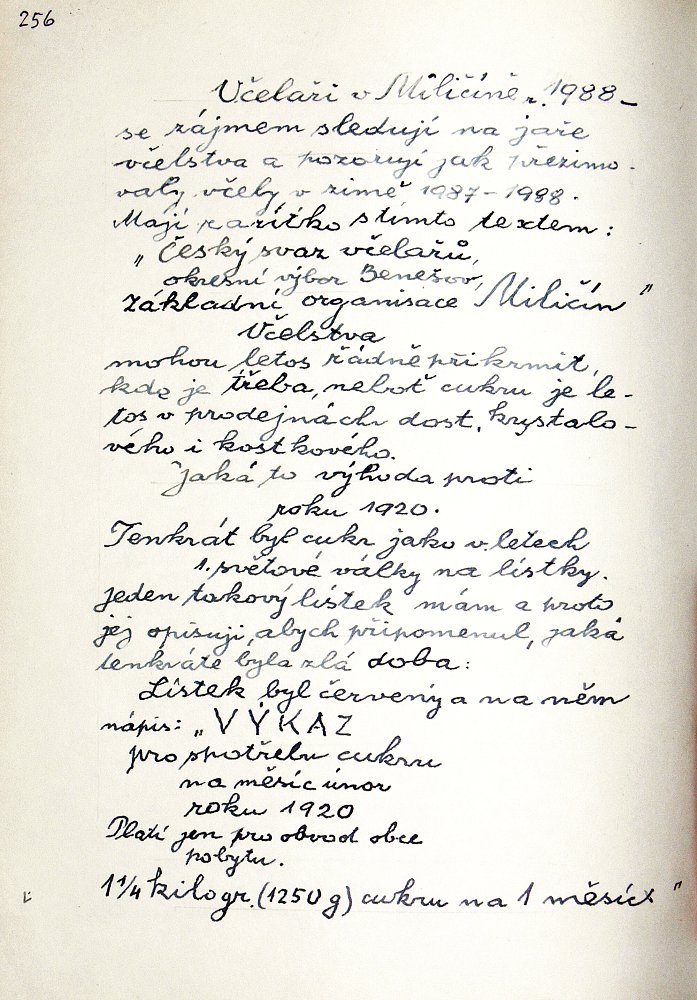 256
Včelaři v Miličíně r. 1988 –
se zájmem sledují na jaře
včelstva a pozorují jak přezimo-
valy včely v zimě 1987 – 1988.
Mají razítko s tímto textem:
„Český svaz včelařů,
okresní výbor Benešov,
základní organisace Miličín"
Včelstva
mohou letos řádně přikrmit,
kde je třeba, neboť cukru je le-
tos v prodejnách dost, krystalo-
vého i kostkového.
Jaká to výhoda proti
roku 1920.
Tenkrát byl cukr jako v letech
1. světové války na lístky.
Jeden takový lístek mám a proto
jej opisuji, abych připomenul, jaká
tenkráte byla zlá doba:
Lístek byl červený a na něm
nápis: „VÝKAZ
pro spotřebu cukru
na měsíc únor
roku 1920
Platí jen pro obvod obce
pobytu.
1 1/4 kilogr. (1250 g) cukru na 1 měsíc"